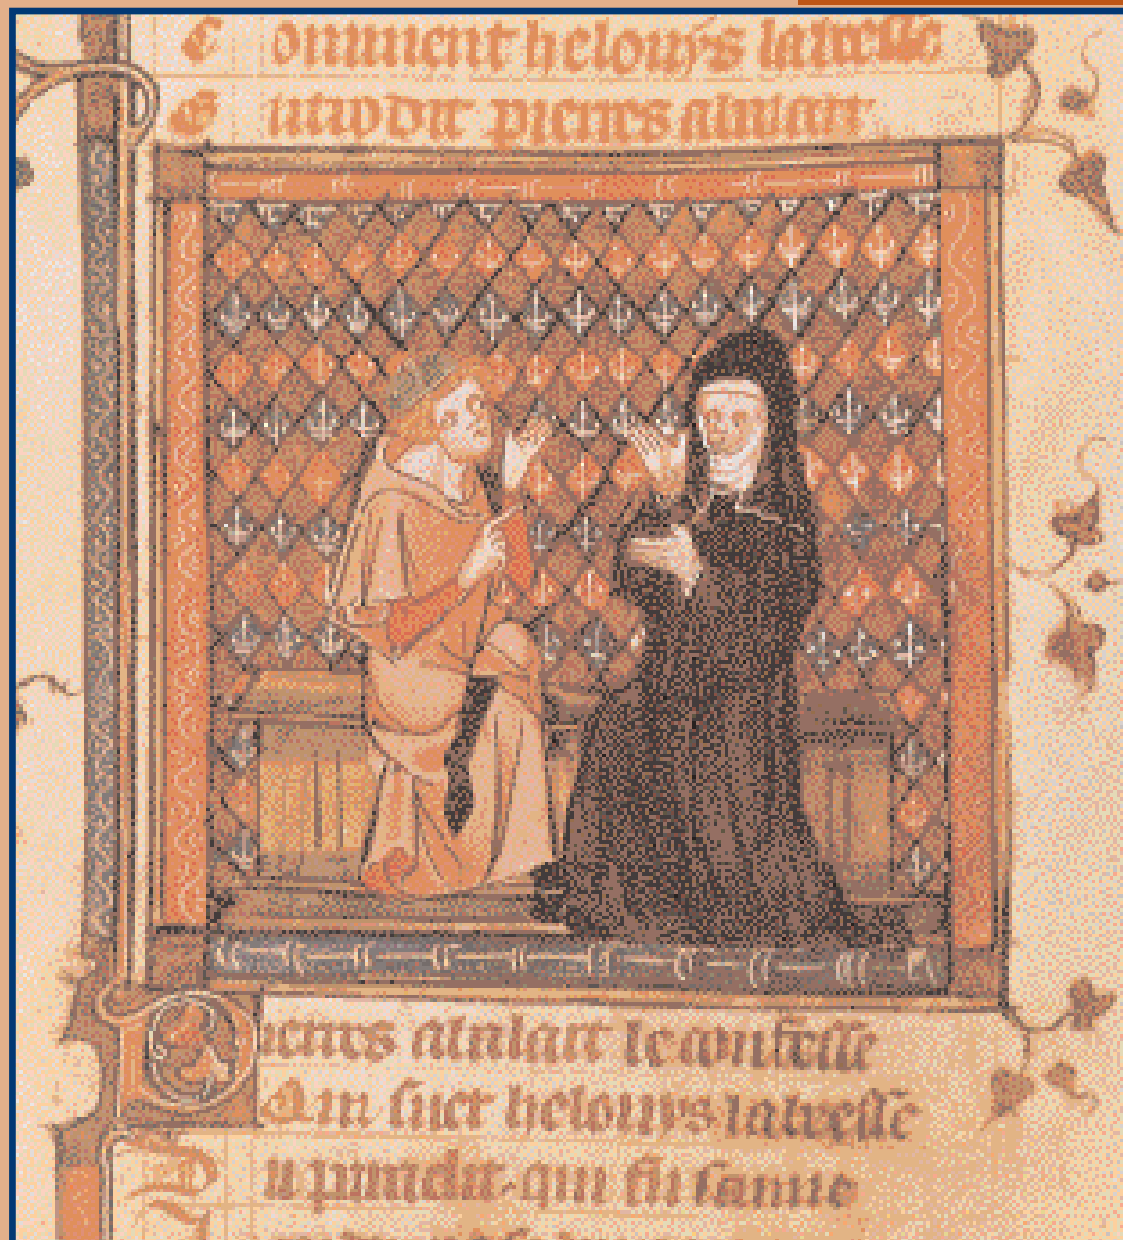 Comment helouys labeesse
pierres abaiart
Pierres abaiart reconfesse
suer helouys labeesse
Du paraclit qui fu samie